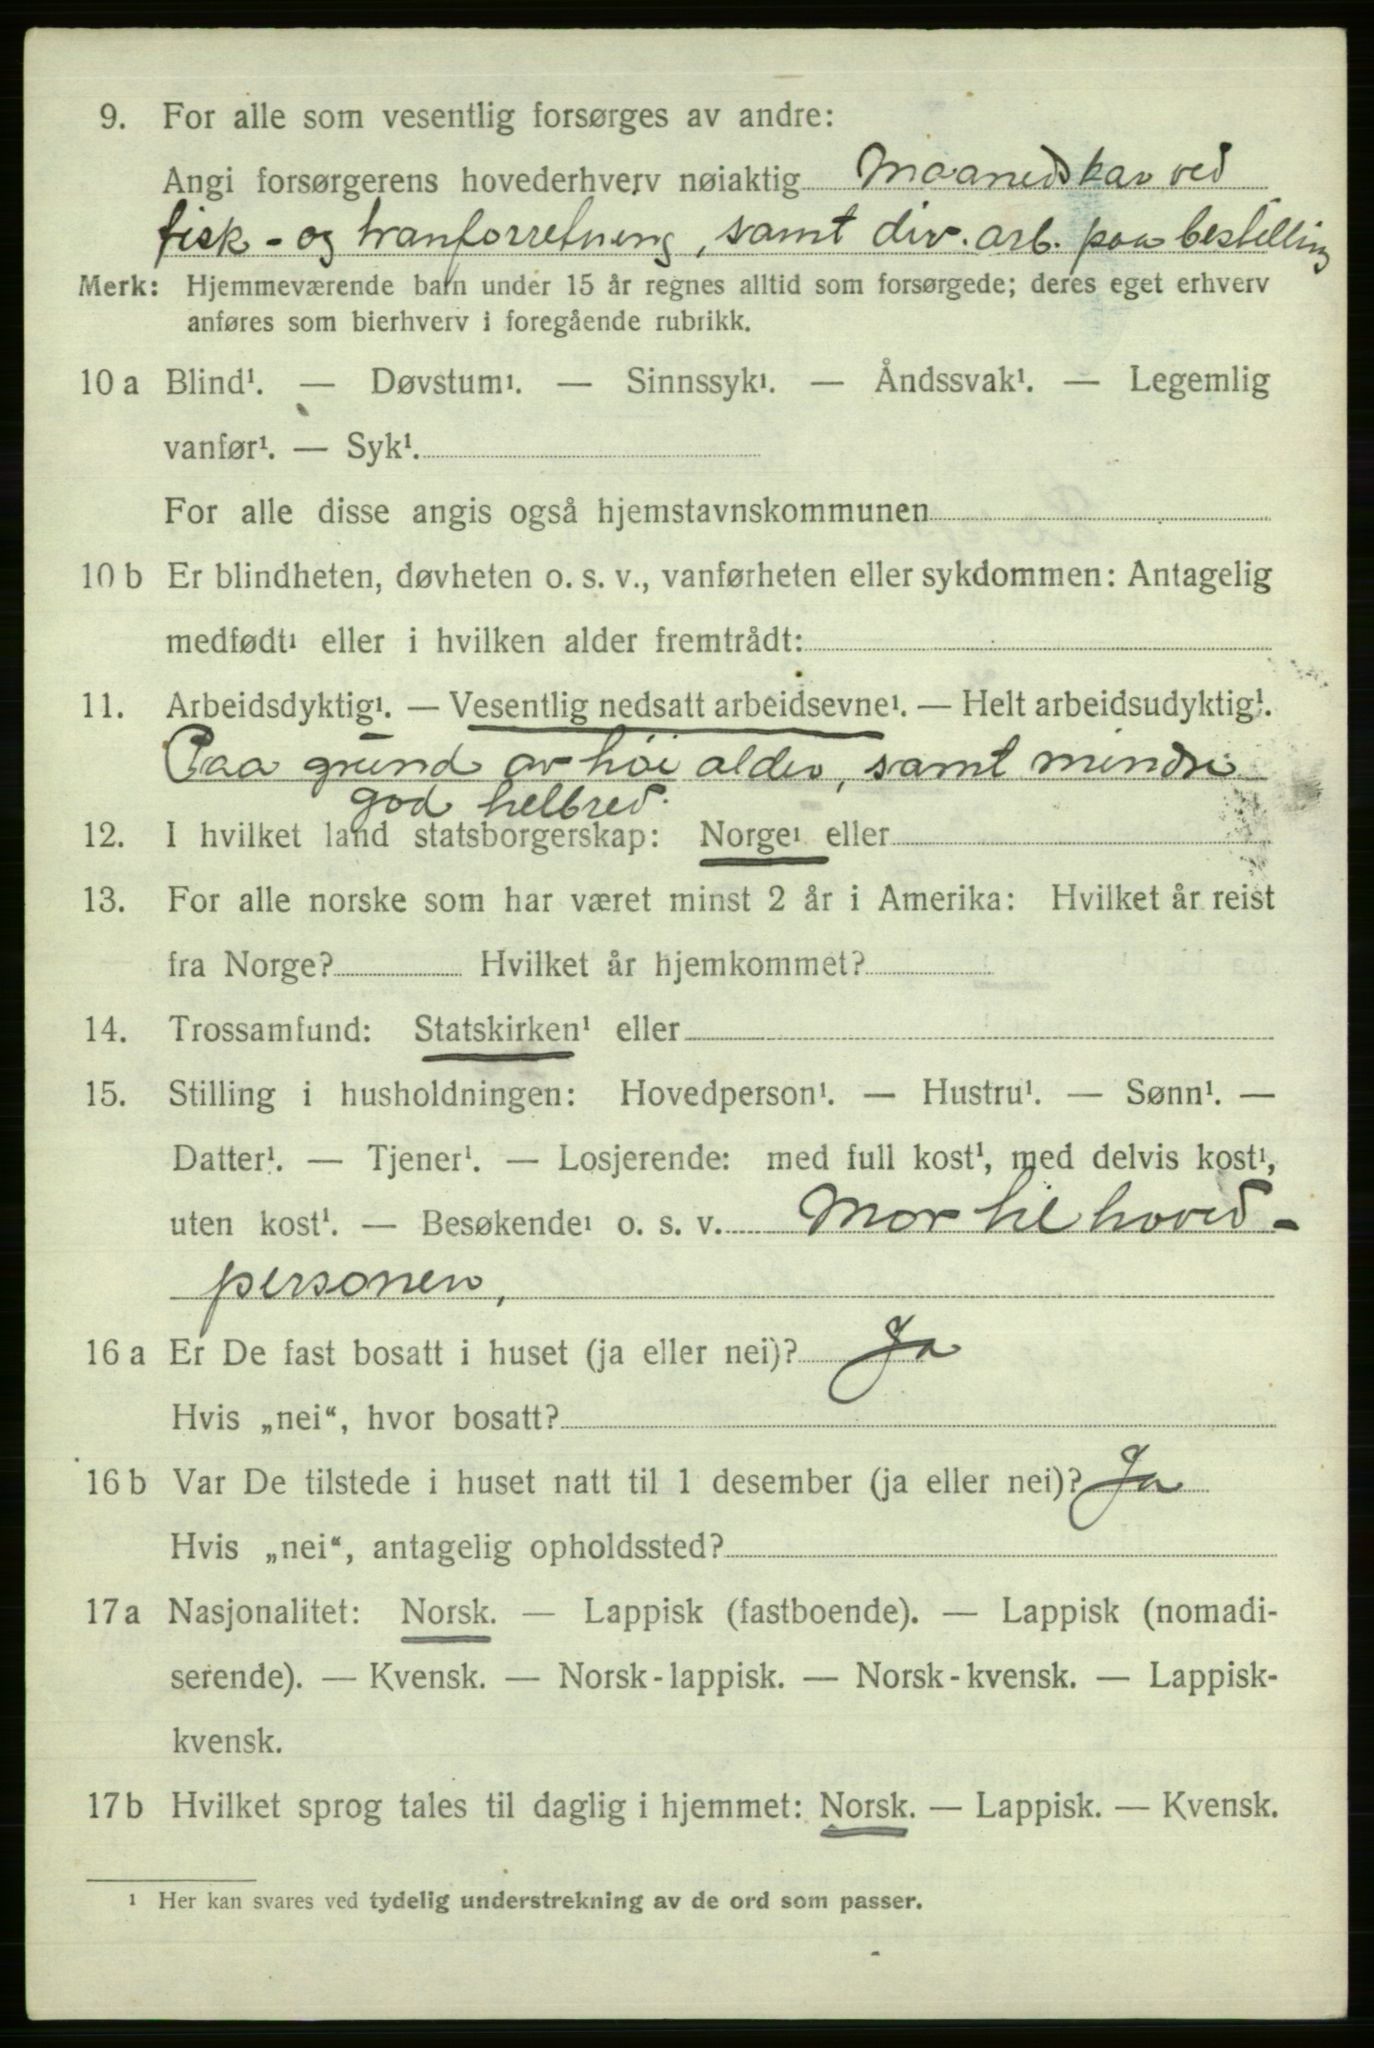 9. For alle som vesentlig forsørges av andre:
Angi forsørgerens hovederhverv nøiaktig Maanedskar ved
fisk - og tranforretning, samt div. arb. paa bestelling
Merk: Hjemmeværende barn under 15 år regnes alltid som forsørgede; deres eget erhverv
anføres som bierhverv i foregående rubrikk.
10 a Blind¹. — Døvstum¹. — Sinnssyk¹. — Åndssvak¹. — Legemlig
vanfør¹. — Syk¹.
For alle disse angis også hjemstavnskommunen
10 b Er blindheten, døvheten o. s. v., vanførheten eller sykdommen: Antagelig
medfødt¹ eller i hvilken alder fremtrådt:
11. Arbeidsdyktig¹. — Vesentlig nedsatt arbeidsevne¹. — Helt arbeidsudyktig¹.
Paa grund av høi alder, samt mindre
god helbred.
12. I hvilket land statsborgerskap: Norge¹ eller
13. For alle norske som har været minst 2 år i Amerika: Hvilket år reist
fra Norge? Hvilket år hjemkommet?
14. Trossamfund: Statskirken¹ eller
15. Stilling i husholdningen: Hovedperson¹. — Hustru¹. — Sønn¹. —
Datter¹. — Tjener¹. — Losjerende: med full kost¹, med delvis kost¹,
uten kost¹. — Besøkende¹ o. s. v. Mor til hoved-
personen,
16 a Er De fast bosatt i huset (ja eller nei)? Ja
Hvis „nei“, hvor bosatt?
16 b Var De tilstede i huset natt til 1 desember (ja eller nei)? Ja
Hvis „nei“, antagelig opholdssted?
17 a Nasjonalitet: Norsk. — Lappisk (fastboende). — Lappisk (nomadi-
serende). — Kvensk. — Norsk-lappisk. — Norsk-kvensk. — Lappisk-
kvensk.
17 b Hvilket sprog tales til daglig i hjemmet: Norsk. — Lappisk. — Kvensk.
¹ Her kan svares ved tydelig understrekning av de ord som passer.